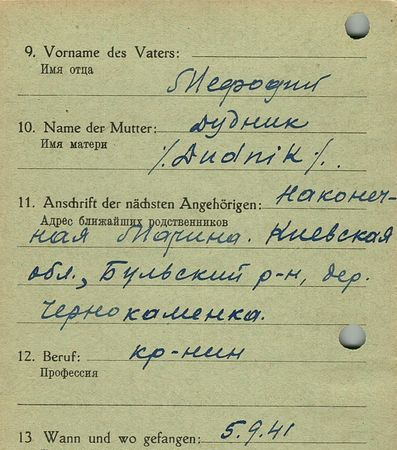 9. Vorname des Vaters:
Имя отца
Мефодий
10. Name der Mutter: Дудник
Имя матери
/. Dudnik /.
11. Anschrift der nächsten Angehörigen: Наконеч-
Адрес ближайших родственников
ная Марина. Киевская
обл., Бульский р-н, дер.
Чернокаменка.
12. Beruf: кр-нин
Профессия
13 Wann und wo gefangen: 5.9.41